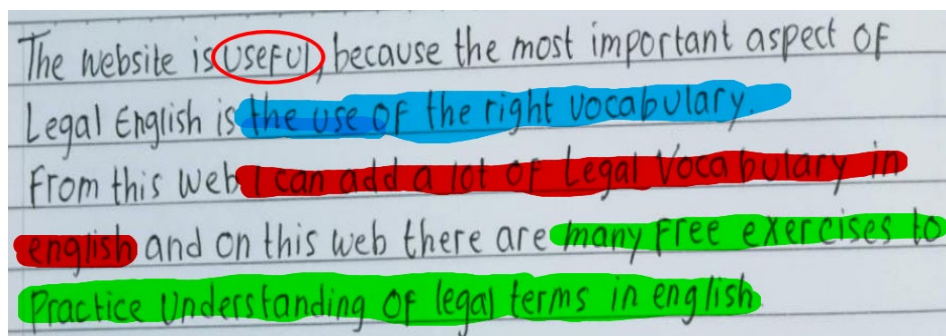 The website is useful, because the most important aspect of
Legal English is the use of the right vocabulary.
From this web I can add a lot of Legal Vocabulary in
english and on this web there are many free exercises to
Practice Understanding of legal terms in english